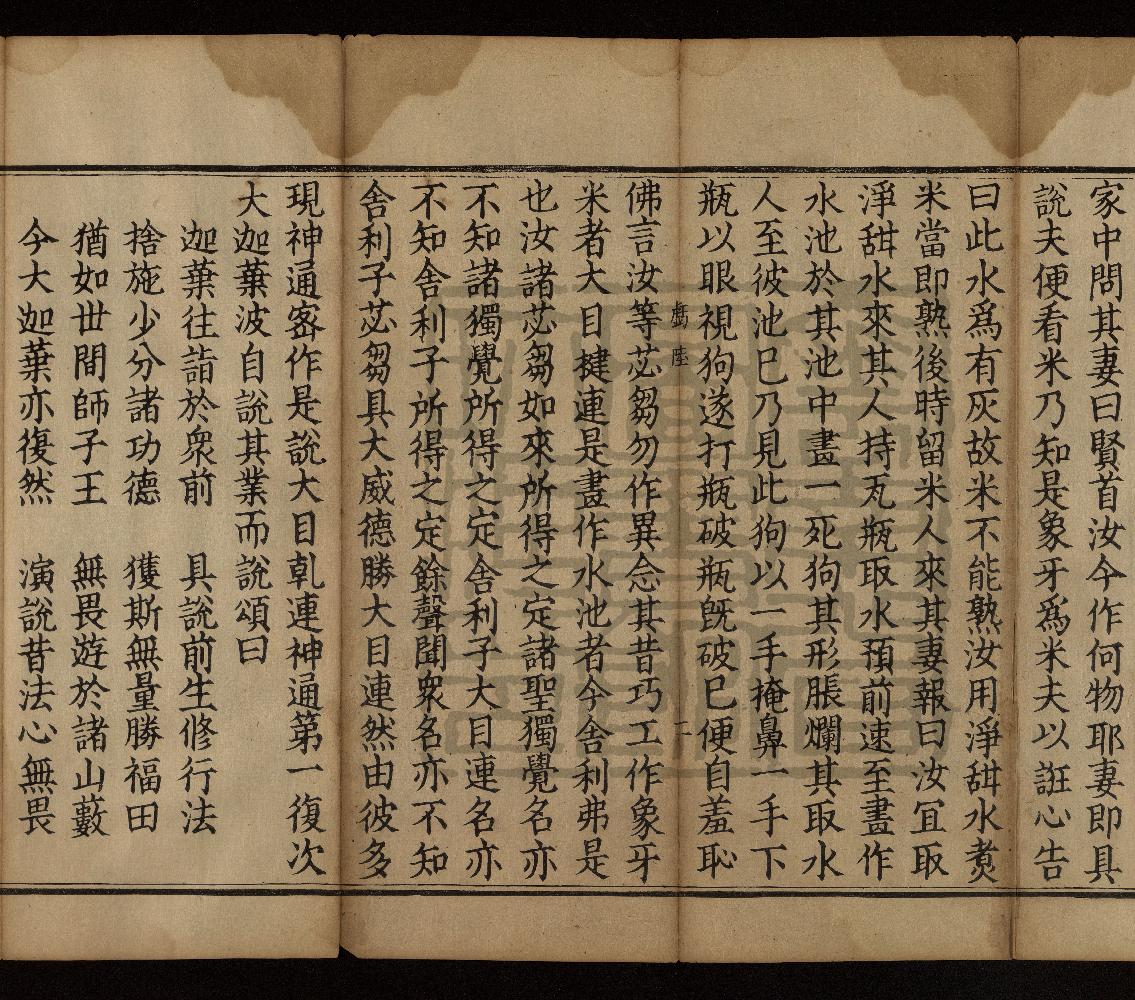 家中問其妻曰賢首汝今作何物耶妻即具
説夫便看米乃知是象牙爲米夫以誑心告
曰此水爲有灰故米不能熟汝用淨甜水煑
米當即熟後時留米人來其妻報曰汝冝取
淨甜水來其人持瓦瓶取水預前速至畫作
水池於其池中畫一死狗其形脹爛其取水
人至彼池巳乃見此狗以一手掩鼻一手下
瓶以眼視狗遂打瓶破瓶旣破巳便自羞恥
佛言汝等苾芻勿作異念其昔巧工作象牙
米者大目揵連是畫作水池者今舎利弗是
也汝諸苾芻如來所得之定諸聖獨覺名亦
不知諸獨覺所得之定舎利子大目連名亦
不知舎利子所得之定餘聲聞衆名亦不知
舎利子苾芻具大威德勝大目連然由彼多
現神通宻作是説大目乹連神通第一復次
大迦葉波自説其業而説頌曰
迦葉往詣於衆前　具説前生修行法
捨施少分諸功德　獲斯無量勝福田
猶如世間師子王　無畏遊於諸山藪
今大迦葉亦復然　演説昔法心無畏